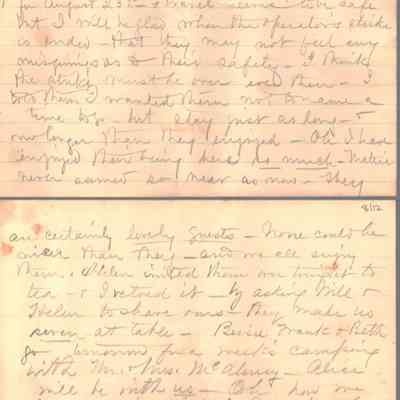 for August 25th - & travel seems to be safe
but I will be glad when the operator's strike
is ended - that they may not feel any
misgivings as to their safety - I think
the strike must be over ere then - I
told them I wanted them not to name a
time to go - but stay just as long - &
no longer than they enjoyed - Oh I have
enjoyed their being here so much - Mattie
never seemed so near as now - They
8/12
are certainly lovely guests - None could be
nicer than they - and we all enjoy
them. Helen invited them over tonight to
tea - & I vetoed it - by asking Will &
Helen to share ours - they made us
seven at table - Bessie Frank & Beth
go tomorrow for a week's camping
with Mr. & Mrs. McAlvay - Alice
will be with us - Oh how we